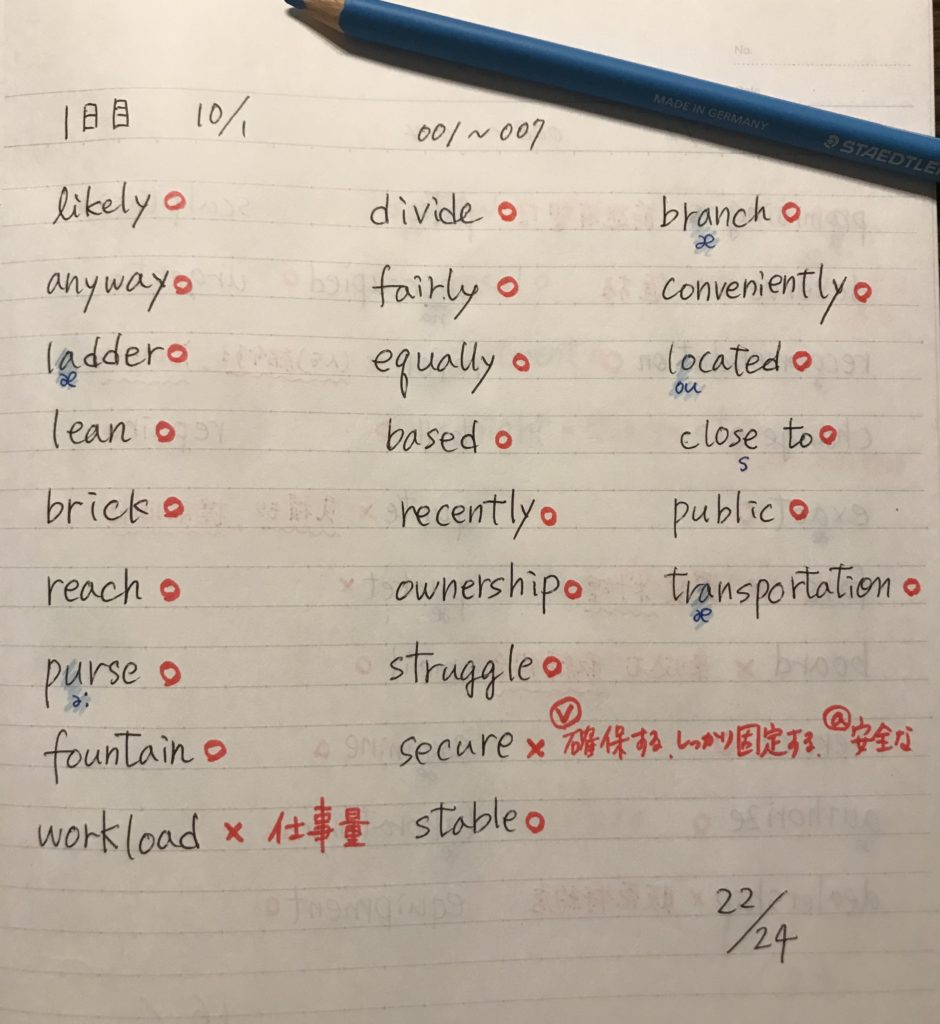 No.
MADE IN GERMANY
STAEDTLER
1日目 10/1 001~007
likely
anyway
ladder
æ
lean
brick
reach
purse
ə:
fountain
workload × 仕事量
divide
fairly
equally
based
recently
ownership
struggle
secure × ⓥ確保する、しっかり固定する、ⓐ安全な
stable
branch
æ
conveniently
located
ou
close to
s
public
transportation
æ
22/24